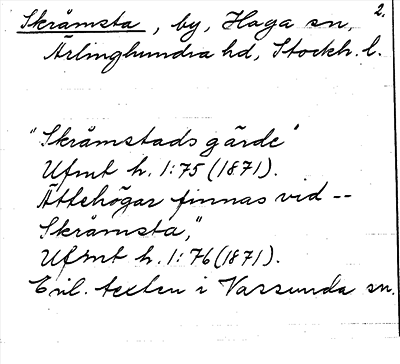 2.
Skråmsta, by, Haga sn,
Ärlinghundra hd, Stockh. l.
"Skråmstads gärde"
Ufmt h. 1:75 (1871).
Ättehögar finnas vid --
Skråmsta,"
Ufmt h. 1:76 (1871).
Enl. texten i Vassunda sn.